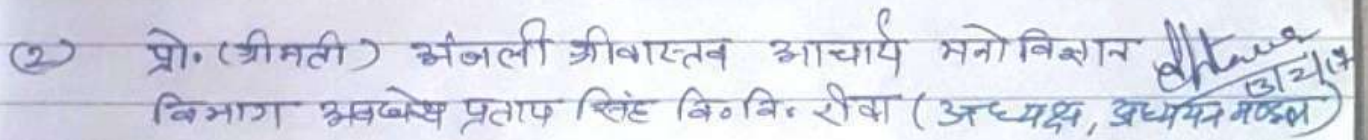 (2) प्रो. (श्रीमती) अंजली श्रीवास्तव आचार्य मनोविज्ञान
13/2/17
विभाग अवधेश प्रताप सिंह वि.वि. रीवा (अध्यक्ष, अध्ययन मण्डल)